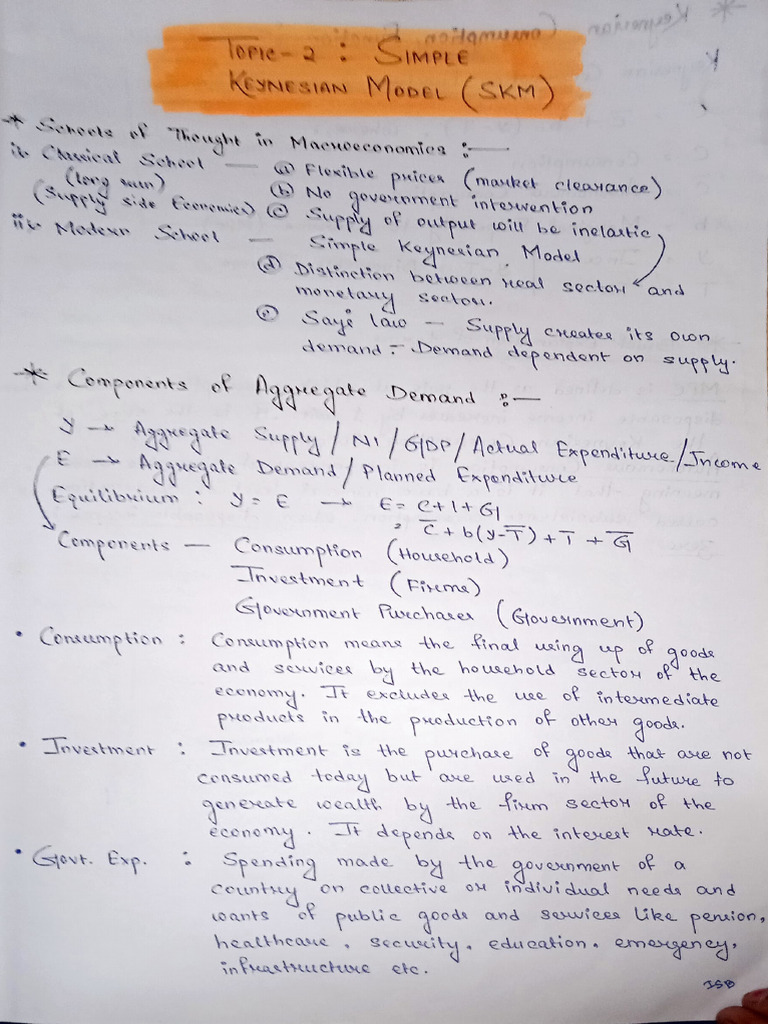 TOPIC-2 : SIMPLE
KEYNESIAN MODEL (SKM)
* Schools of Thought in Macroeconomics :—
i) Classical School — (a) Flexible prices (market clearance)
(long run) (b) No government intervention
(Supply side Economics) (c) Supply of output will be inelastic
ii) Modern School — Simple Keynesian Model
(d) Distinction between real sector and
monetary sector.
(e) Say's law — Supply creates its own
demand - Demand dependent on supply.
* Components of Aggregate Demand :—
Y → Aggregate Supply / NI / GDP / Actual Expenditure / Income
E → Aggregate Demand / Planned Expenditure
Equilibrium : Y = E → E = C + I + G
= C̅ + b(Y-T̅) + I̅ + G̅
Components — Consumption (Household)
Investment (Firms)
Government Purchases (Government)
• Consumption : Consumption means the final using up of goods
and services by the household sector of the
economy. It excludes the use of intermediate
products in the production of other goods.
• Investment : Investment is the purchase of goods that are not
consumed today but are used in the future to
generate wealth by the firm sector of the
economy. It depends on the interest rate.
• Govt. Exp. : Spending made by the government of a
country on collective or individual needs and
wants of public goods and services like pension,
healthcare, security, education, emergency,
infrastructure etc.
JSB